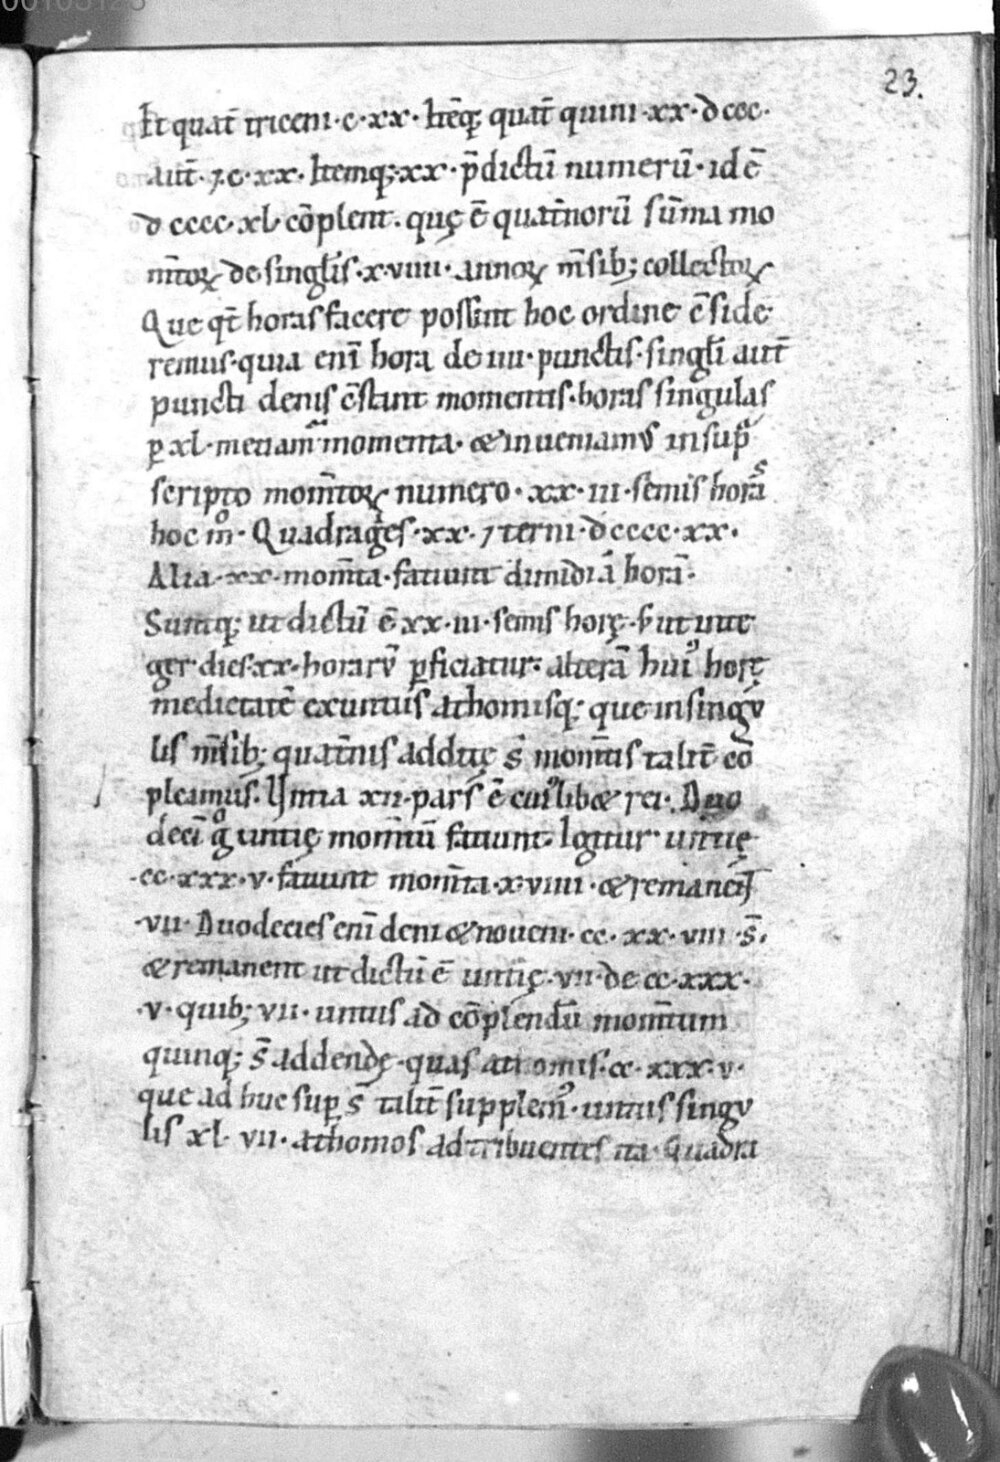 00105128
23.
Et quat̄ triceni·c·xx· Itēq; quat̄ quini·xx·dccc·
aut̄·⁊c·xx· Itemq;·xx·p̄dictū numerū·id ē
dcccc·xl· cōplent· quę ē quat̄norū sūma mo
m̄toꝝ de singlis·x·viiii·annoꝝ m̄sib; collectoꝝ
Que qt̄ horas facere possint hoc ordine c̄side
remus·quia enī hora de iiii·punctis·singli aut̄
puncti denis c̄stant momentis·horas singulas
ꝑ xl·metiam᷑ momenta·& inueniamꝰ insup̄
scripto mom̄toꝝ numero·xx·iii·semis horas
hoc mͦ· Quadrages·xx·⁊ terni·dcccc·xx·
Alia·xx·mom̄ta·faciunt dimidiā horā·
Suntq; ut dictū ē xx·iii·semis horę· ut inte
ger dies·xx· horarū ꝑficiatur· alterā huiꝰ horę
medietatē ex untiis athomisq; que in singu
lis m̄sib; quat̄nis additę s̄ mom̄tis talit̄ cō
pleamus. Untia xii·pars ē cuiꝰlib& rei· Duo
decī gͦ untię mom̄tū faciunt· Igitur untię
·cc·xxx·v·faciunt mom̄ta·x·viiii·& remanent
·vii· Duodecies enī deni & noueni·cc·xx·viii·s̄·
& remanent ut dictū ē untię·vii·de cc·xxx·
·v·quib; vii·untiis ad cōplendū mom̄tum
quinq; s̄ addendę·quas athomis·cc·xxx·v·
que ad huc suꝑ s̄ talit̄ supplemꝰ·untiis singu
lis xl·vii·athomos adtribuentes ita· Quadra